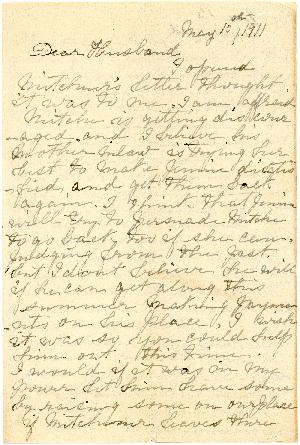 May 12th 1911
Dear Husband
I opened
Mitchner's letter thought
it was to me. I am afraid
Mitche is getting discour
aged and I believe his
Mother in law is trying her
best to make Jennie dissatis
fied, and get them back
again. I think that Jennie
will try to persuade Mitche
to go back, too if she can.
Judging from the past.
but I don't believe he will
if he can get along this
summer making payme
nts on his place. I wish
it was so you could help
him out, this time.
I would if it was in my
power let him have some
by raising some on our place
if Mitchner leaves there